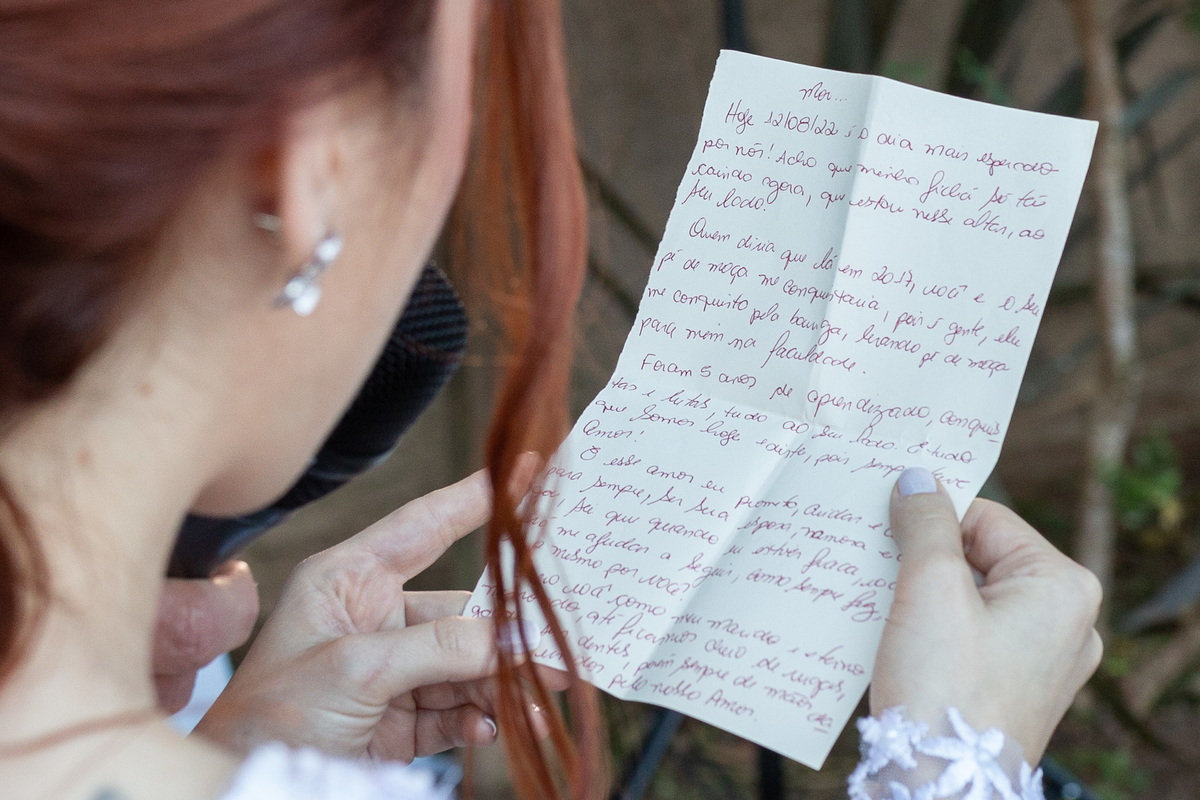 Mor...
Hoje 12/08/22 é o dia mais esperado
por nós! Acho que minha ficha só tá
caindo agora, que estou nesse altar, ao
seu lado.
Quem diria que lá em 2017, você e o seu
pé de moça me conquistaria, pois é gente, ele
me conquistou pela barriga, levando pé de moça
para mim na faculdade.
Foram 5 anos de aprendizado, conquis
tas e lutas, tudo ao seu lado. E tudo
que somos hoje existe, pois sempre teve
Amor!
E esse amor eu prometo, cuidar e
para sempre, ser sua esposa, namorada e
sei que quando eu estiver fraca, você
me ajudar a seguir, como sempre fez,
mesmo por você!
você como meu marido e eterno
até ficarmos cheio de rugas,
dentes, porém sempre de mãos da
pelo nosso Amor.